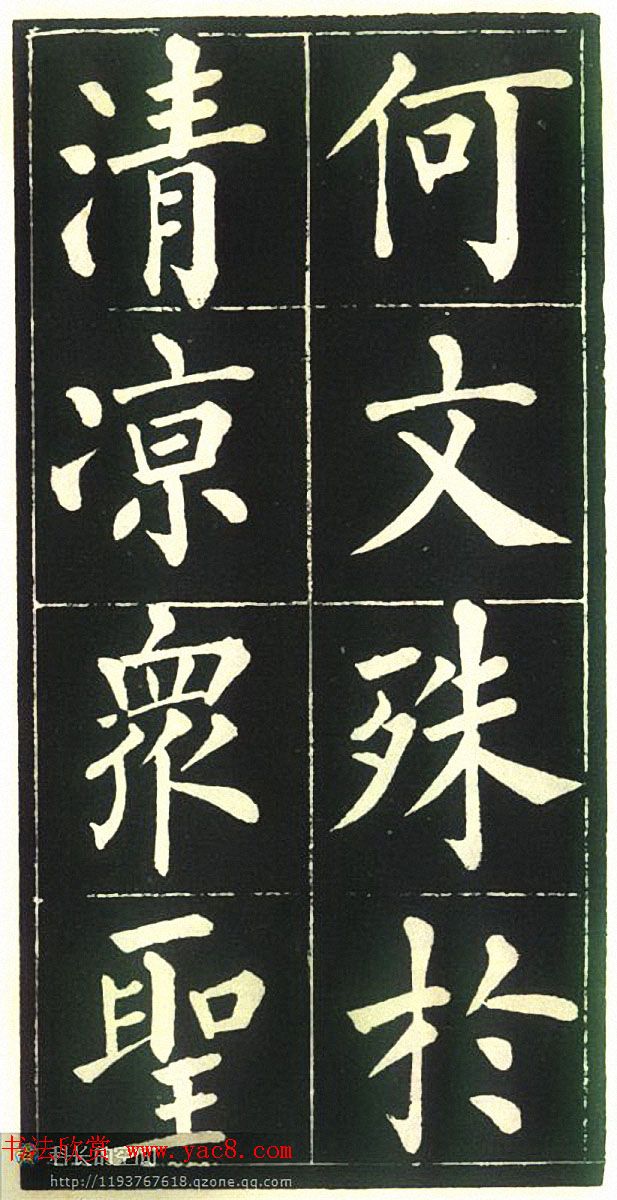 何文殊於
清涼眾聖
书法欣赏 www.yac8.com
http://1193767618.qzone.qq.com